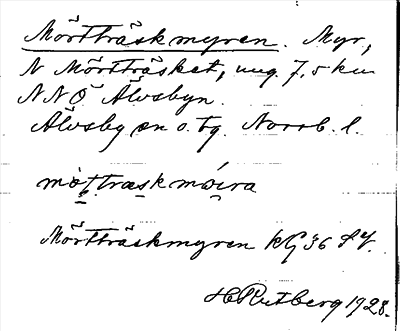 Mörtträskmyren. Myr,
N Mörtträsket, ung. 7,5 km
NNÖ Älvsbyn.
Älvsby sn o. tg. Norrb. l.
Mörtträskmyren kG 36 SV.
H Rutberg 1928.